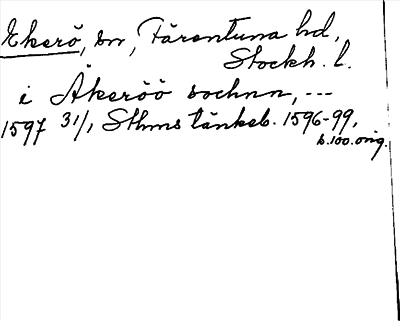 Ekerö, sn, Färentuna hd,
Stockh. l.
i Åkeröö sochnn, ---
1597 31/1 Sthms tänkeb. 1596-99,
s. 100. orig.